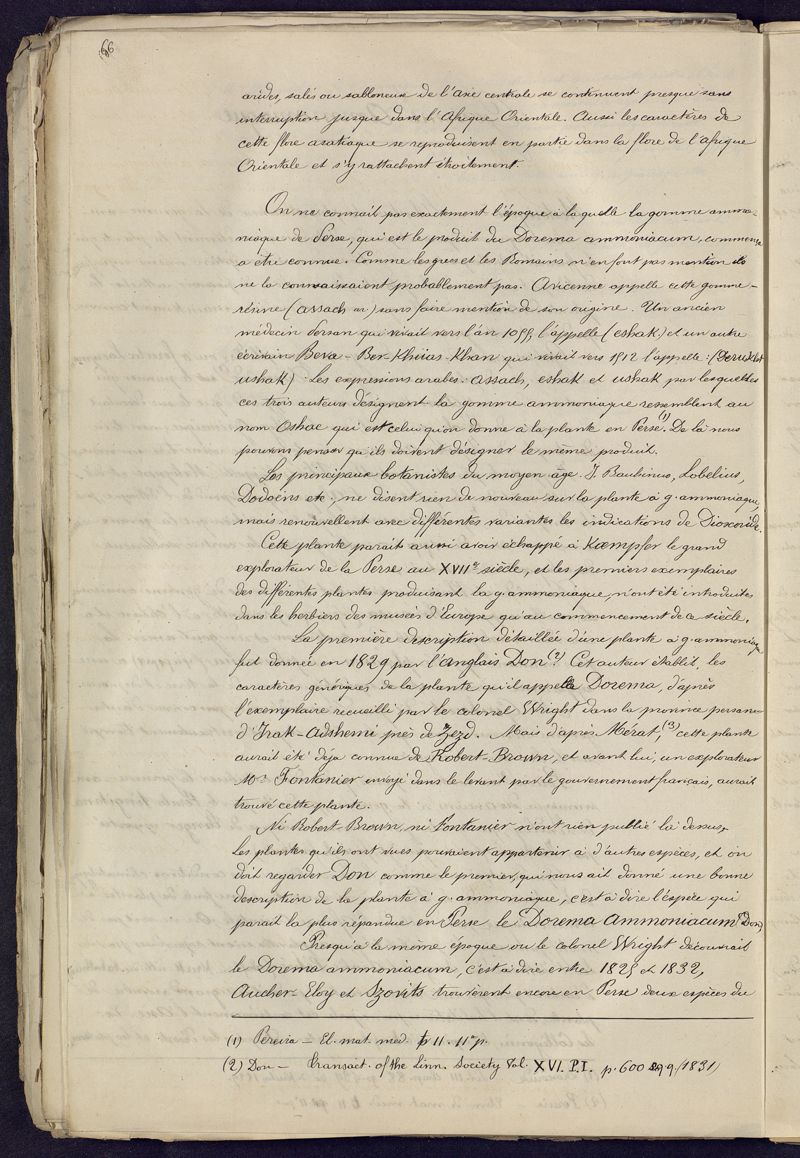 66
arides, salés ou sabloneux de l'Asie centrale se continuent presque sans
interruption jusque dans l'Afrique Orientale. Aussi les caractères de
cette flore asatiaque se reproduisent en partie dans la flore de l'Afrique
Orientale et s'y rattachent étroitement.
On ne connaît pas exactement l'époque à laquelle la gomme ammo-
niaque de Perse, qui est le produit du Dorema ammoniacum, commença
a être connue. Comme les grecs et les Romains n'en font pas mention ils
ne la connaissaient probablement pas. Avicenne appelle cette gomme-
résine (assach) sans faire mention de son origine. Un ancien
médecin Persan qui vivait vers l'an 1055, l'appelle (eshak) et un autre
écrivain Beva-Ben-Khuias-Khan qui vivait vers 1512 l'appelle (
ushak). Les expressions arabes: assach, eshak et ushak par lesquelles
ces trois auteurs désignent la gomme ammoniaque ressemblent au
nom Oshac qui est celui qu'on donne à la plante en Perse (1). De là nous
pouvons penser qu'ils doivent désigner le même produit.
Les principaux botanistes du moyen âge J. Bauhinus, Lobelius,
Dodoens etc., ne disent rien de nouveau sur la plante à g. ammoniaque,
mais renouvellent avec différentes variantes les indications de Dioscoride.
Cette plante parait aussi avoir échappé à Kæmpfer le grand
explorateur de la Perse au XVIIe siècle, et les premiers exemplaires
des différentes plantes produisant la g. ammoniaque, n'ont été introduites
dans les herbiers des musées d'Europe qu'au commencement de ce siècle.
La première description détaillée d'une plante à g. ammoniaque
fut donnée en 1829 par l'anglais Don (2). Cet auteur établit, les
caractères génériques de la plante qu'il appella Dorema, d'après
l'exemplaire recueilli par le colonel Wright dans la province persane
d'Irak-Adshemi près de Jezd. Mais d'après Mérat, (3) cette plante
aurait été déja connue de Robert-Brown, et avant lui, un explorateur
Mr Fontanier envoyé dans le levant par le gouvernement français, aurait
trouvé cette plante.
Ni Robert-Brown, ni Fontanier n'ont rien publié là dessus,
Les plantes qu'ils ont vues pouvaient appartenir à d'autres espèces, et on
doit regarder Don comme le premier, qui nous ait donné une bonne
description de la plante à g. ammoniaque, c'est à dire l'espèce qui
parait la plus répandue en Perse le Dorema Ammoniacum (Don)
Presqu'à la même époque ou le colonel Wright découvrait
le Dorema ammoniacum, c'est à dire entre 1825 et 1832,
Aucher-Eloy et Szovits trouvèrent encore en Perse deux espèces du
(1) Pereira — El. mat. med. II. p.
(2) Don — Transact. of the Linn. Society Vol. XVI. P.I. p. 600 (1831)